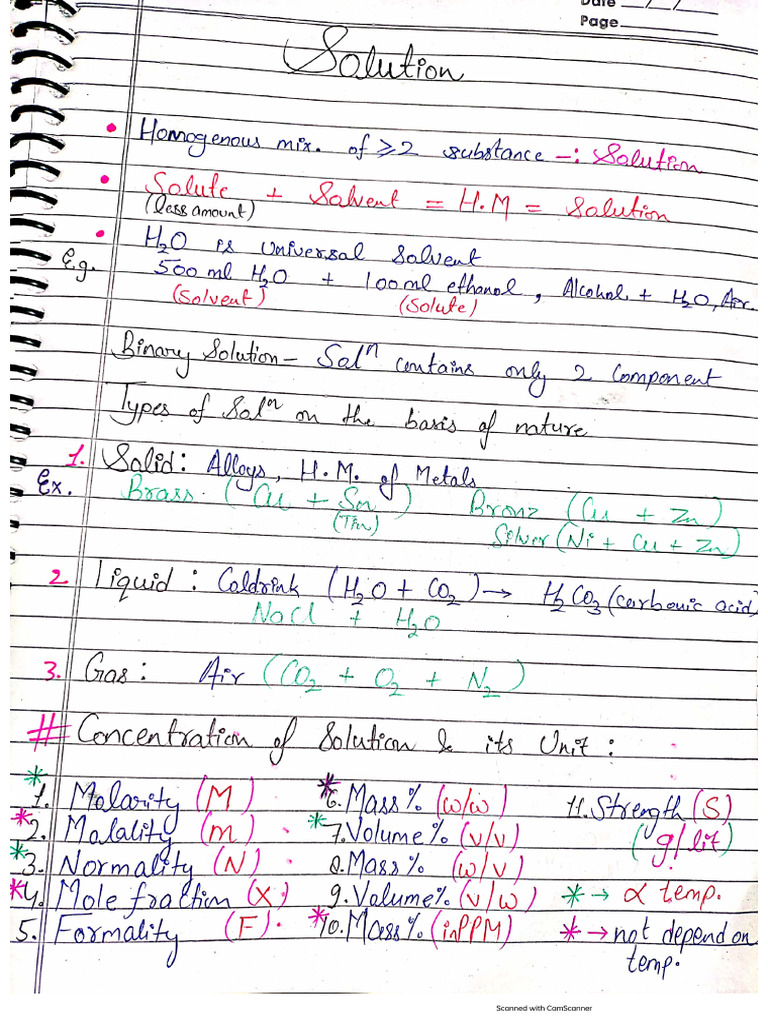 Date __/__/__
Page
Solution
• Homogenous mix. of ≥2 substance -: Solution
• Solute + Solvent = H.M = Solution
(less amount)
• H₂O is universal Solvent
E.g. 500 ml H₂O + 100 ml ethanol, Alcohol + H₂O, Air.
(Solvent) (Solute)
Binary Solution - Solⁿ contains only 2 Component
Types of Solⁿ on the basis of nature
1. Solid: Alloys, H.M. of Metals
Ex. Brass (Cu + Sn) Bronz (Cu + Zn)
(Tin) Silver (Ni + Cu + Zn)
2. Liquid: Coldrink (H₂O + CO₂) → H₂CO₃ (carbonic acid)
NaCl + H₂O
3. Gas: Air (CO₂ + O₂ + N₂)
# Concentration of Solution & its Unit:
* 1. Molarity (M) * 6. Mass% (w/w) 11. Strength (S)
* 2. Molality (m) * 7. Volume% (v/v) (g/lit)
* 3. Normality (N) 8. Mass% (w/v)
* 4. Mole fraction (X) 9. Volume% (v/w) * → ∝ temp.
5. Formality (F) * 10. Mass% (in PPM) * → not depend on
temp.
Scanned with CamScanner